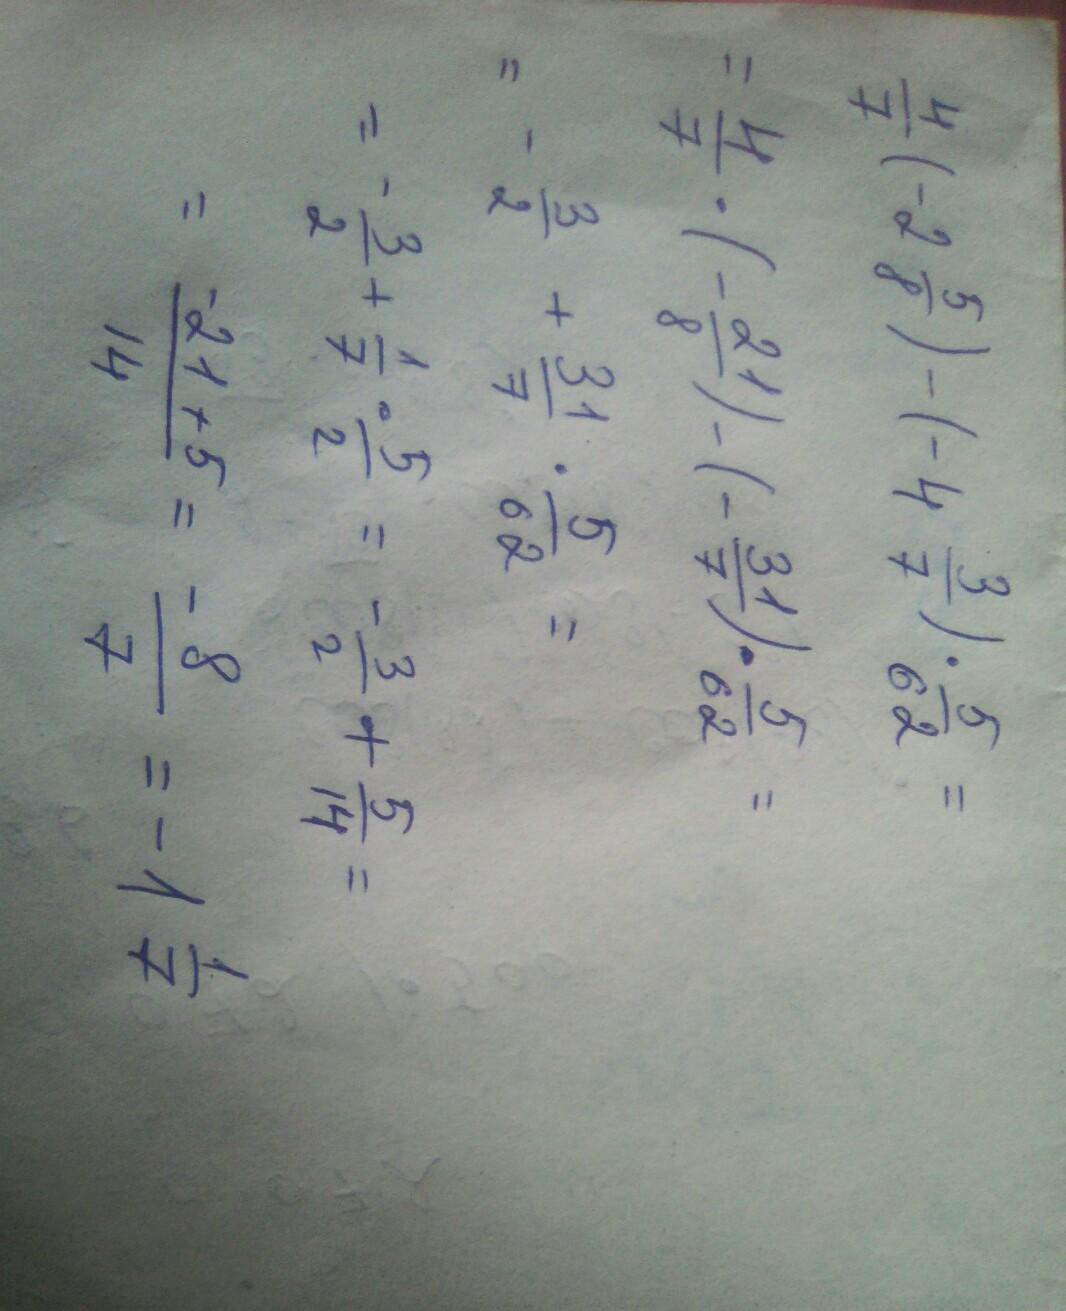 4/7 (-2 5/8) - (-4 3/7) · 5/62 =
= 4/7 · (- 21/8) - (- 31/7) · 5/62 =
= - 3/2 + 31/7 · 5/62 =
= - 3/2 + 1/7 · 5/2 = - 3/2 + 5/14 =
= -21+5/14 = -8/7 = -1 1/7